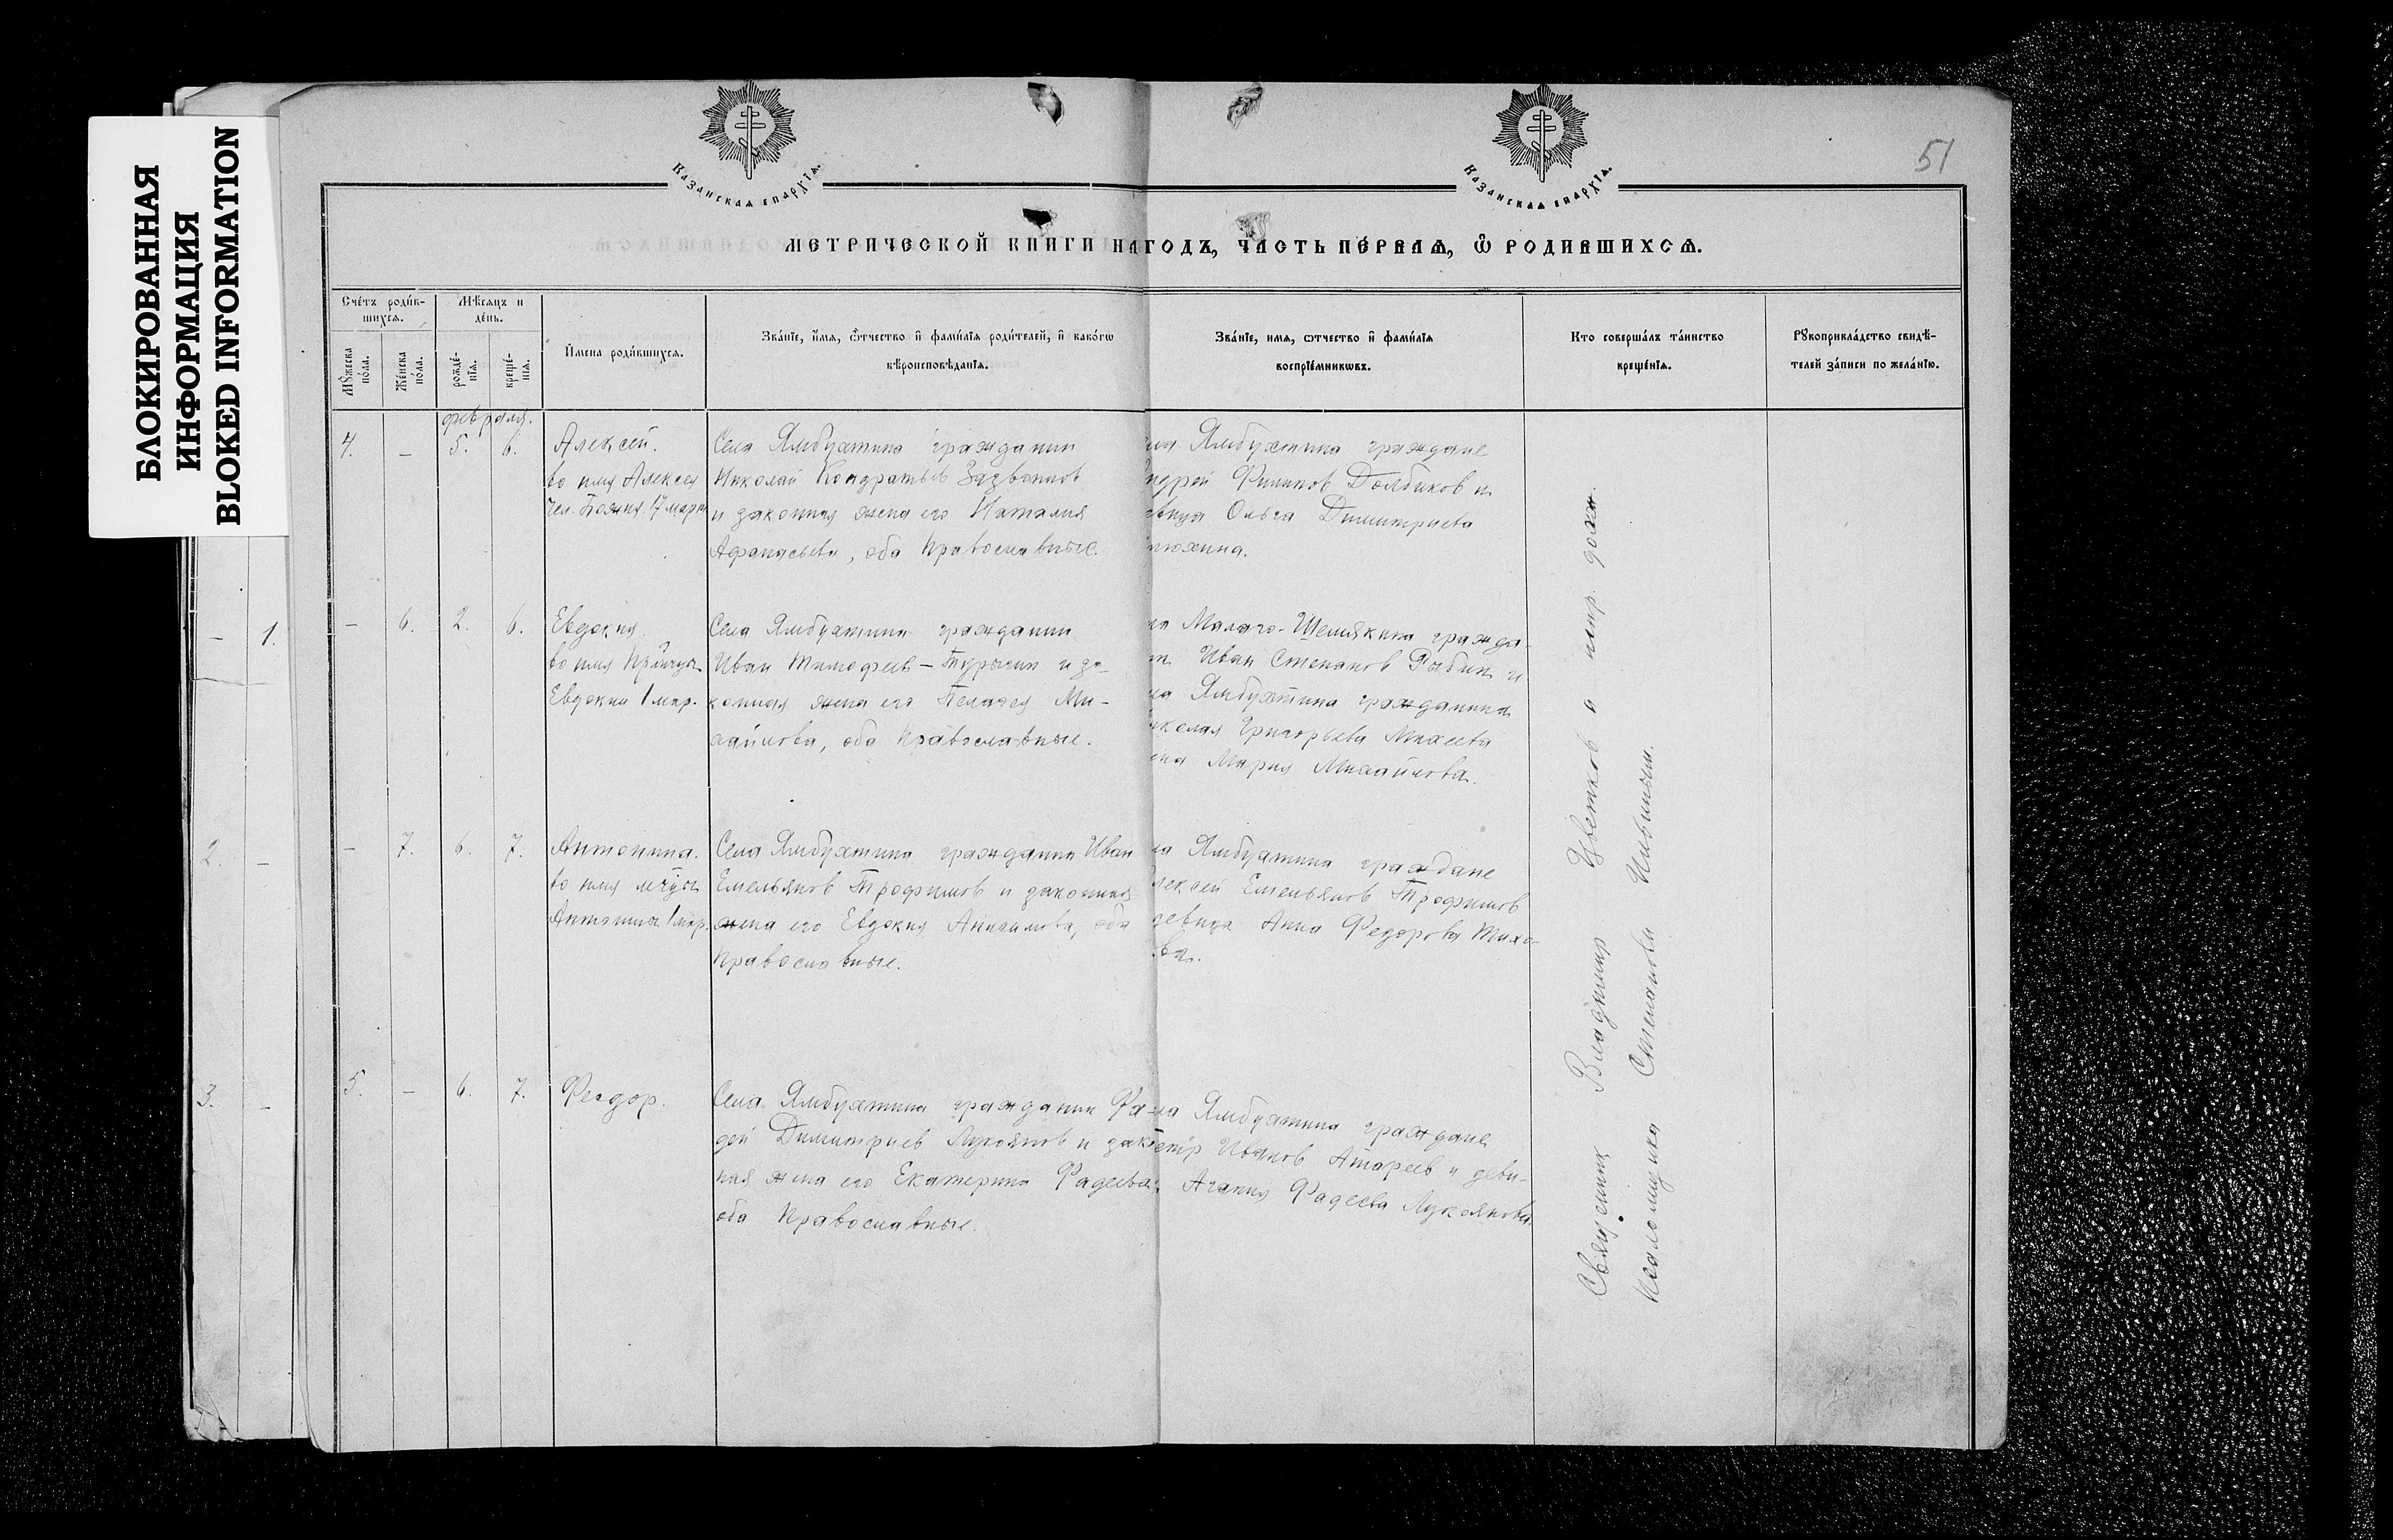 БЛОКИРОВАННАЯ
ИНФОРМАЦИЯ
BLOKED INFORMATION
Казанская епархїѧ.
Казанская епархїѧ.
51
МЕТРИЧЕСКОЙ КНИГИ НА ГОДЪ, ЧАСТЬ ПЕ́РВАѦ, Ѿ РОДИВШИХСѦ.
Сче́тъ роди́в-
шихсѧ.
Мѣ́сѧцъ и
де́нь.
Мꙋ́жеска
по́ла.
Же́нска
по́ла.
рожде́-
нїѧ.
креще́-
нїѧ.
И҆мена роди́вшихсѧ.
Зва́нїе, и҆́мѧ, ѻ҆́тчество и҆ фами́лїѧ роди́телей, и҆ како́гѡ
вѣроисповѣ́данїѧ.
Зва́нїе, имѧ, ѻтчество и҆ фами́лїѧ
воспрїе́мникѡвъ.
Кто соверша́лъ та́инство
креще́нїѧ.
Рꙋкоприкла́дство свидѣ́-
телей за́писи по жела́нїю.
февраля.
4. - 5. 6. Алексей.
во имя Алексея
Чел. Божия. 17 мар
Села Ямбухтина гражданин
Николай Кондратьев
и законная жена его Наталия
Афанасьева, оба Православные.
Ямбухтина граждане
Филипов Долбиков и
Ольга Димитриева
- 6. 2. 6. Евдокия.
во имя
Евдокии 1 мар.
Села Ямбухтина гражданин
Иван Тимофеев - Турыгин и за-
конная жена его Пелагея Ми-
хайлова, оба Православные.
Малаго-Шемякина гражда-
Иван Степанов Рыбин и
Ямбухтина гражданина
Григорьева Михеева
Мария Михайлова.
- 7. 6. 7. Антонина.
во имя мчцы
Антонины 1 мар.
Села Ямбухтина гражданин Иван
Емельянов Трофимов и законная
жена его Евдокия Анисимова, оба
Православные.
Ямбухтина граждане
Емельянов Трофимов
девица Анна Федорова Тихо-
ва.
5. - 6. 7. Феодор.
Села Ямбухтина гражданин Фа-
дей Димитриев Лукоянов и зако
ная жена его Екатерина Фадеева
оба Православные.
Ямбухтина граждане
Иванов и деви-
Фадеева Лукоянова.
Священник Владимир Цветков а испр. долж.
Псаломщика Степанов Ильиным.
- 1.
2. -
3. -